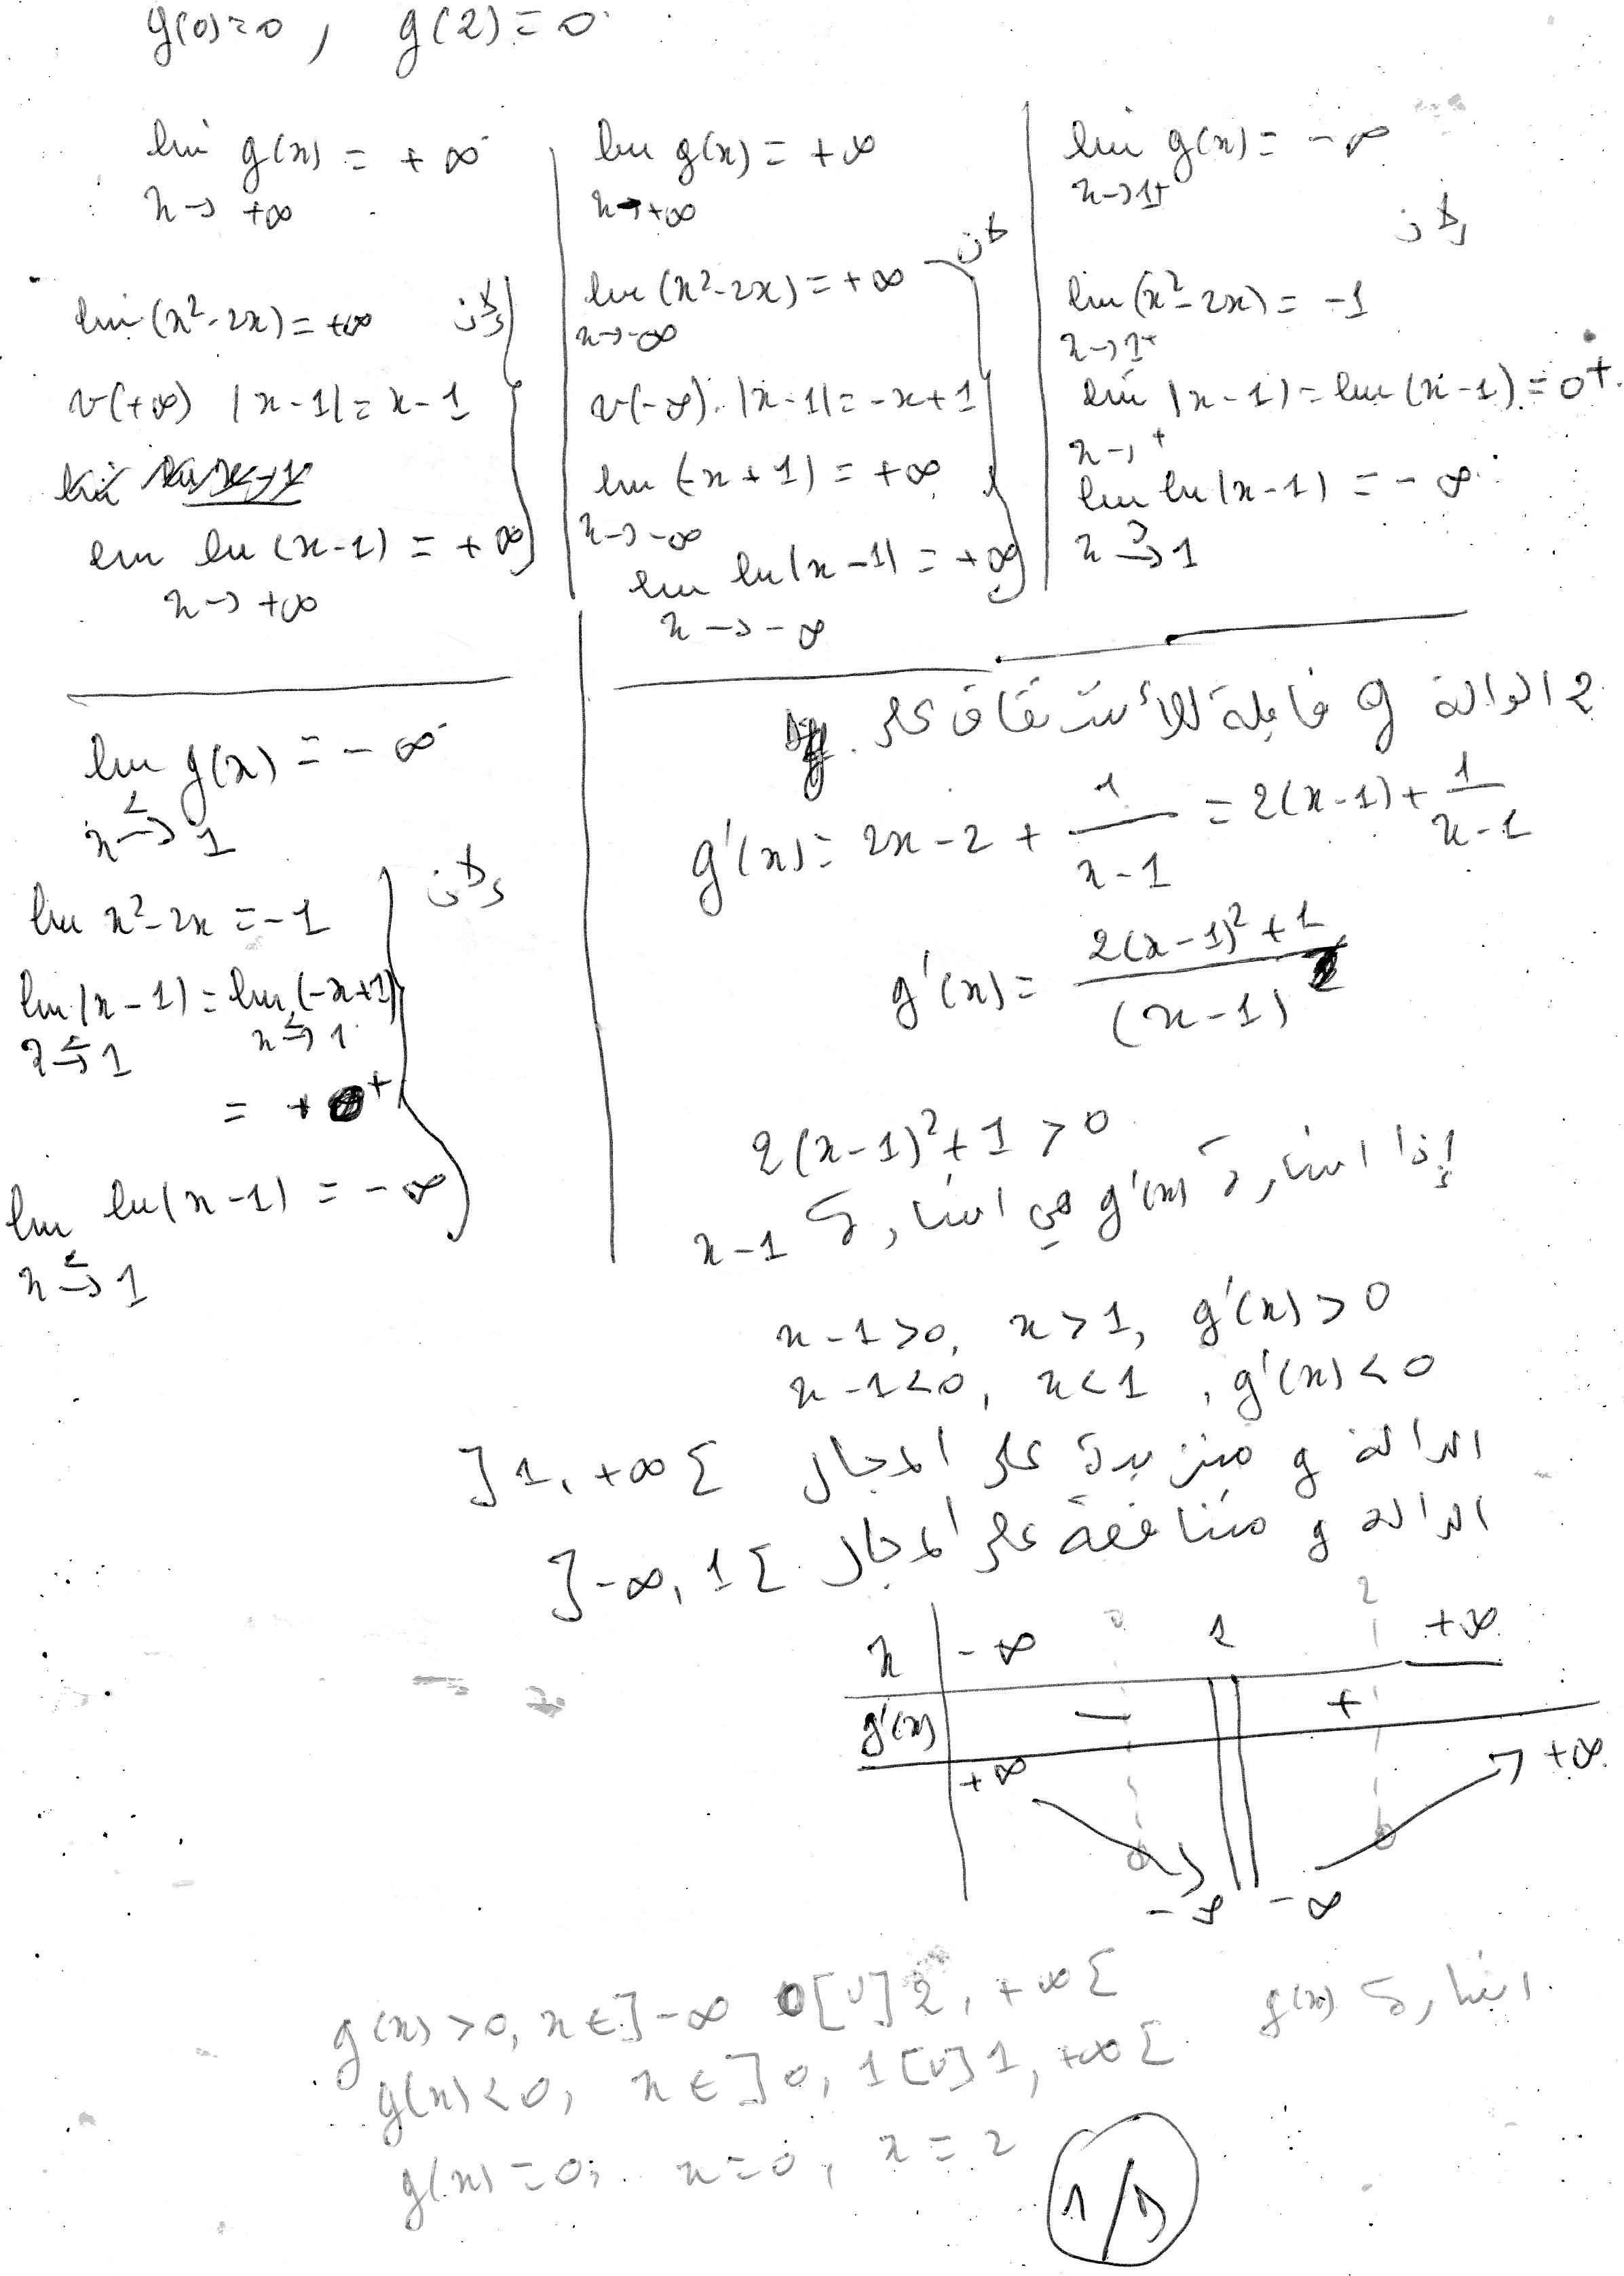 g(0)=0 , g(2)=0
lim g(x) = +∞
x→ +∞
lim (x²-2x) = +∞ لان
v(+∞) |x-1| = x-1
lim ln (x-1) = +∞
x→ +∞
lim g(x) = +∞
x→+∞
لان
lim (x²-2x) = +∞
x→-∞
v(-∞). |x-1| = -x+1
lim (-x+1) = +∞
x→-∞
lim ln|x-1| = +∞
x→-∞
lim g(x) = -∞
x→1+
لان
lim (x²-2x) = -1
x→1+
lim |x-1| = lim (x-1) = 0+
x→+
lim ln|x-1| = -∞
x >→ 1
lim g(x) = -∞
x <→ 1
لان
lim x²-2x = -1
lim |x-1| = lim (-x+1)
x <→ 1 x <→ 1
= +0+
lim ln|x-1| = -∞
x <→ 1
2 الدالة g قابلة للأشتقاق على
g'(x) = 2x-2 + 1/(x-1) = 2(x-1) + 1/(x-1)
g'(x) = (2(x-1)²+1)/(x-1)
2(x-1)²+1 > 0
إذا اشارة g'(x) هي اشارة x-1
x-1>0, x>1, g'(x)>0
x-1<0, x<1, g'(x)<0
الدالة g متزيدة على المجال ]1, +∞[
الدالة g متناقصة على المجال ]-∞, 1[
x -∞ 0 1 2 +∞
g'(x) - +
+∞ 0 -∞ -∞ 0 +∞
اشارة g(x)
g(x)>0, x∈]-∞ 0[∪]2, +∞[
g(x)<0, x∈]0, 1[∪]1, +∞[
g(x)=0; x=0, x=2